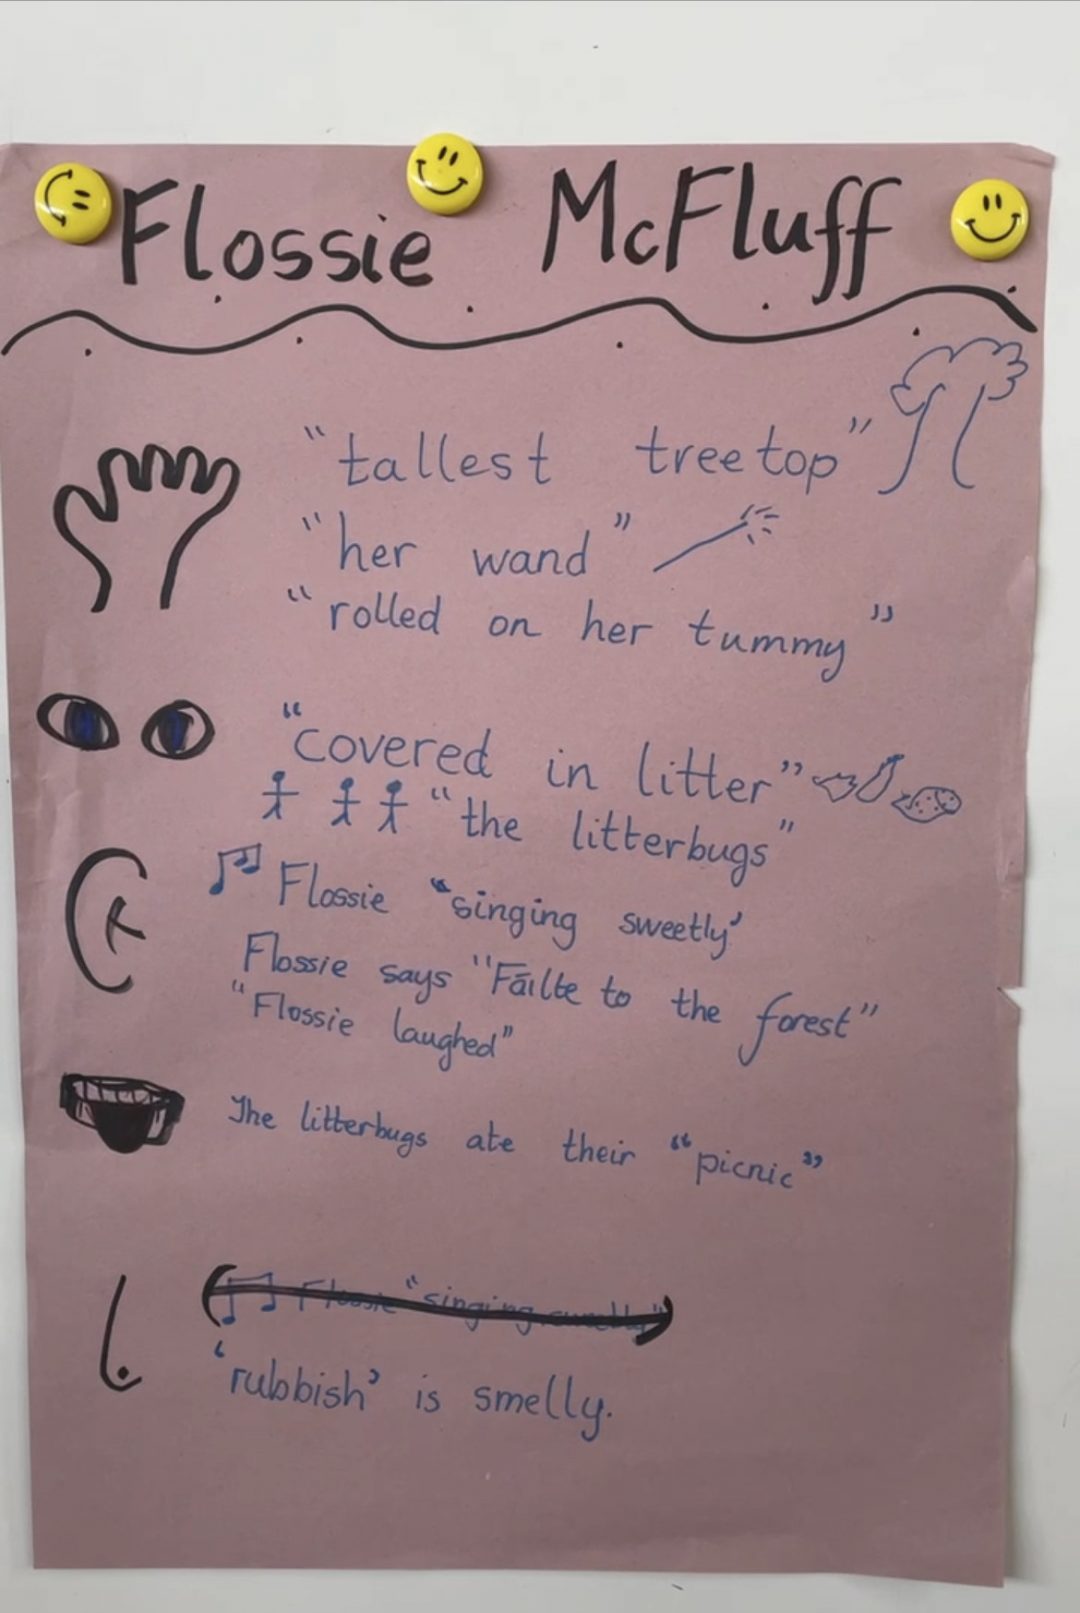 Flossie McFluff
"tallest treetop"
"her wand"
"rolled on her tummy"
"covered in litter"
"the litterbugs"
Flossie "singing sweetly'
Flossie says "Fáilte to the forest"
"Flossie laughed"
The litterbugs ate their "picnic"
Flossie "singing sweetly"
'rubbish' is smelly.